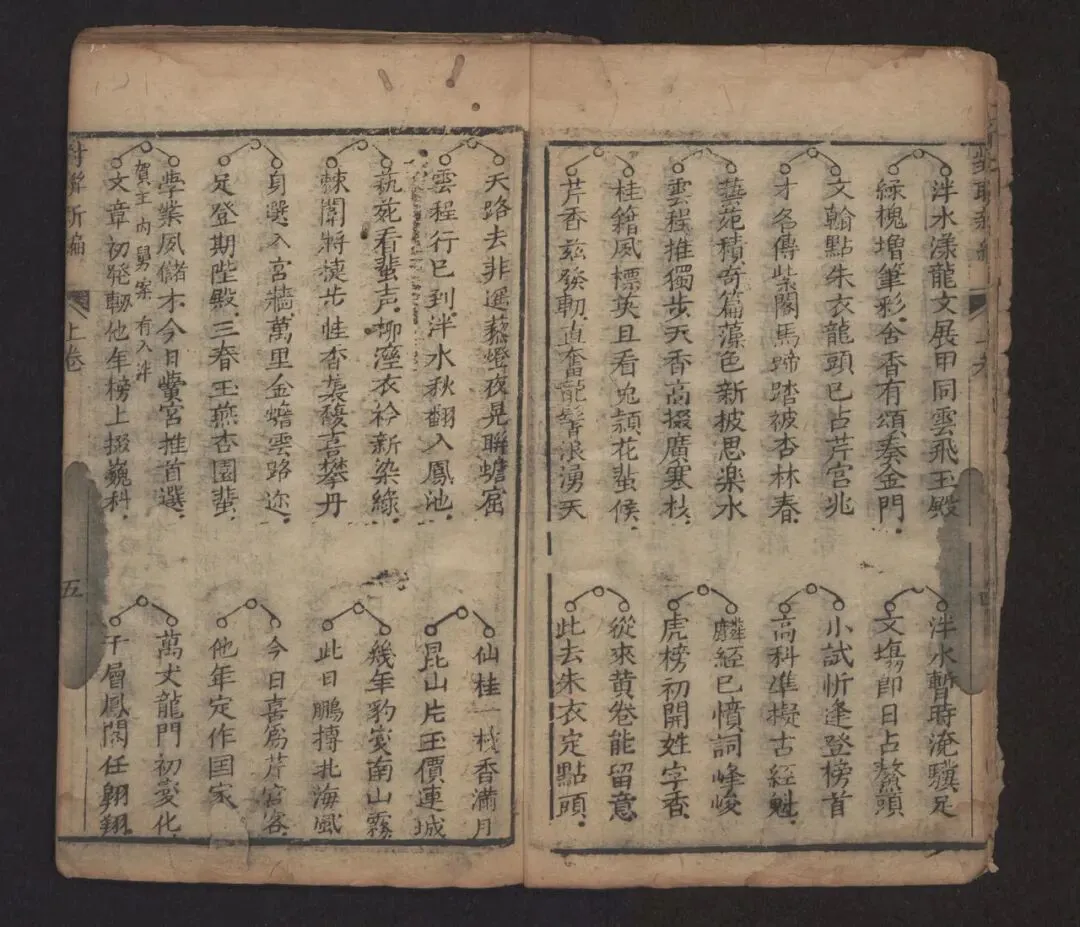 泮水漾龍文展甲同雲飛玉殿
綠槐增筆彩含香有頌奏金門
文翰點朱衣龍頭已占芹宮兆
才名傳紫閣馬蹄踏彼杏林春
藝苑積奇篇藻色新披思樂水
雲程推獨步天香高掇廣寒枝
桂籍夙標英且看兎頴花蜚候
芹香玆發軔直奮龍髻浪湧天
泮水暫時淹驥足
文塲即日占鰲頭
小試忻逢登榜首
高科準擬古經魁
麟經已憤詞峰峻
虎榜初開姓字香
從來黄卷能留意
此去朱衣定點頭
天路去非遥藜燈夜晃聯蟾窟
雲程行已到泮水秋翻入鳳池
萟苑看蜚声柳溼衣衿新染綠
棘闈將搀步性香裘馥喜攀丹
身選入宮牆萬里金蟾雲路迩
足登期陛殿三春玉燕杏園蜚
學業夙儲才今日黌宮推首選
賀主內舅案有入泮
文章初發軔他年榜上掇巍科
仙桂一枝香滿月
昆山片玉價連城
幾年豹变南山霧
此日鵬摶北海風
今日喜為芹宮客
他年定作国家
萬丈龍門初变化
千層鳳閣任翱翔
對聯新編
上卷
五